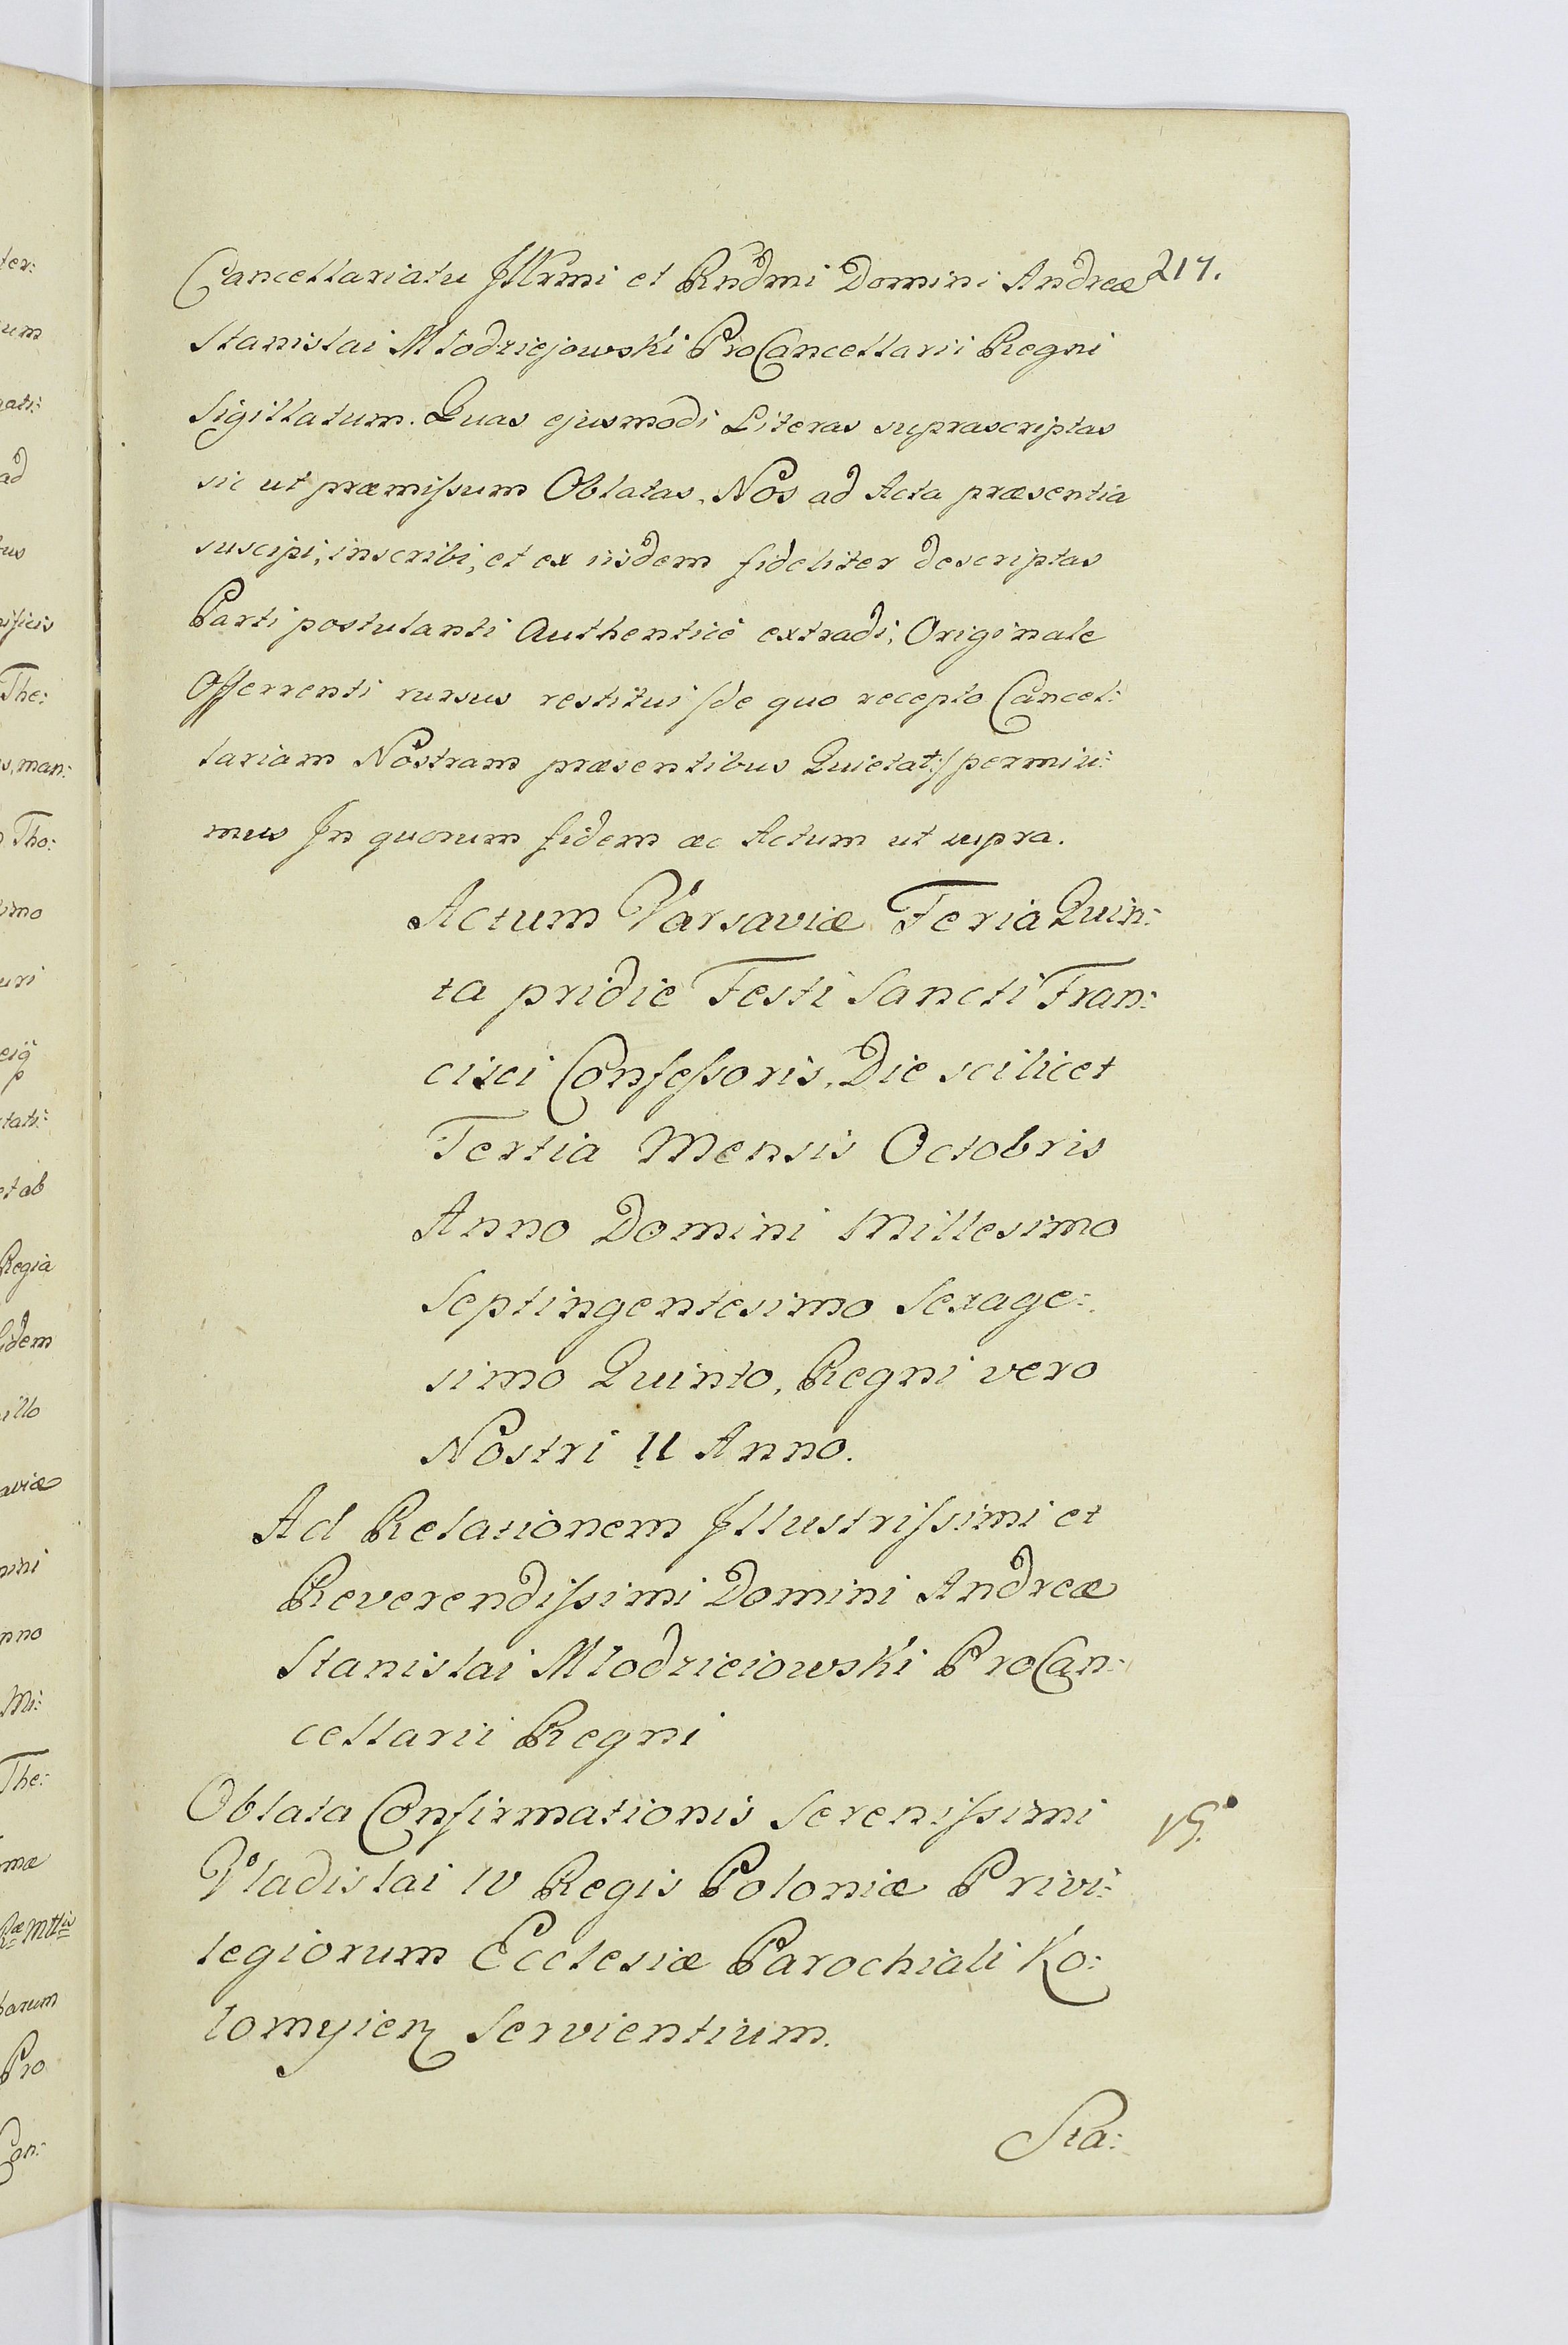 217.
Cancellariatu Jllrmi et Rndmi Domini Andreæ
Stanislai Młodziejowski ProCancellarii Regni
Sigillatum. Quas ejusmodi Literas suprascriptas
sic ut præmissum Oblatas, Nos ad Acta præsentia
suscipi, inscribi, et ex iisdem fideliter descriptas
Parti postulanti Authenticè extradi, Originale
Offerrenti rursus restitui /de quo recepto Cancel:
lariam Nostram præsentibus Quietat:/ permisi:
mus Jn quorum fidem ac Actum ut supra.
Actum Varsaviæ Feria Quin:
ta pridie Festi Sancti Fran:
cisci Confessoris, Die scilicet
Tertia Mensis Octobris
Anno Domini Millesimo
Septingentesimo Sexage:
simo Quinto, Regni vero
Nostri II Anno.
Ad Relationem Jllustrissimi et
Reverendissimi Domini Andreæ
Stanislai Młodzieiowski ProCan:
cellarii Regni
Oblata Confirmationis Serenissimi
Vladislai IV Regis Poloniæ Privi:
legiorum Ecclesiæ Parochiali Ko:
lomyien Servientium.
Sta: